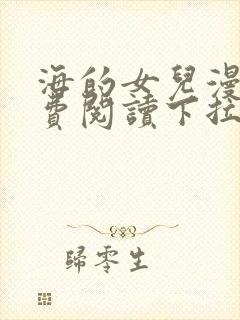 海的女兒漫
費閱讀下拉
歸零生